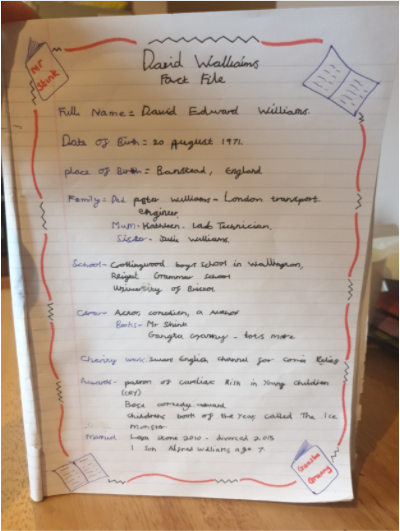 Mr
Stink
David Walliams
Fact File
Full Name = David Edward Williams.
Date of Birth = 20 August 1971.
place of Birth = Banstead, England
Family = Dad peter Williams - London transport
engineer
Mum - Kathleen - Lab Technician.
Sister - Julie Williams
School - Collingwood boys school in Wallington,
Reigate Grammar school
University of Bristol
Career - Actor, comedian, a Author
Books - Mr Stink
Gangsta Granny - lots more
Charity work swam English channel for comic Relief
Awards - patron of cardiac Risk in Young children
(CRY)
Best comedy award
childrens book of the Year called The Ice
Monster.
Married Lara stone 2010 - divorced 2015
1 Son Alfred Williams age 7.
Gangsta
Granny